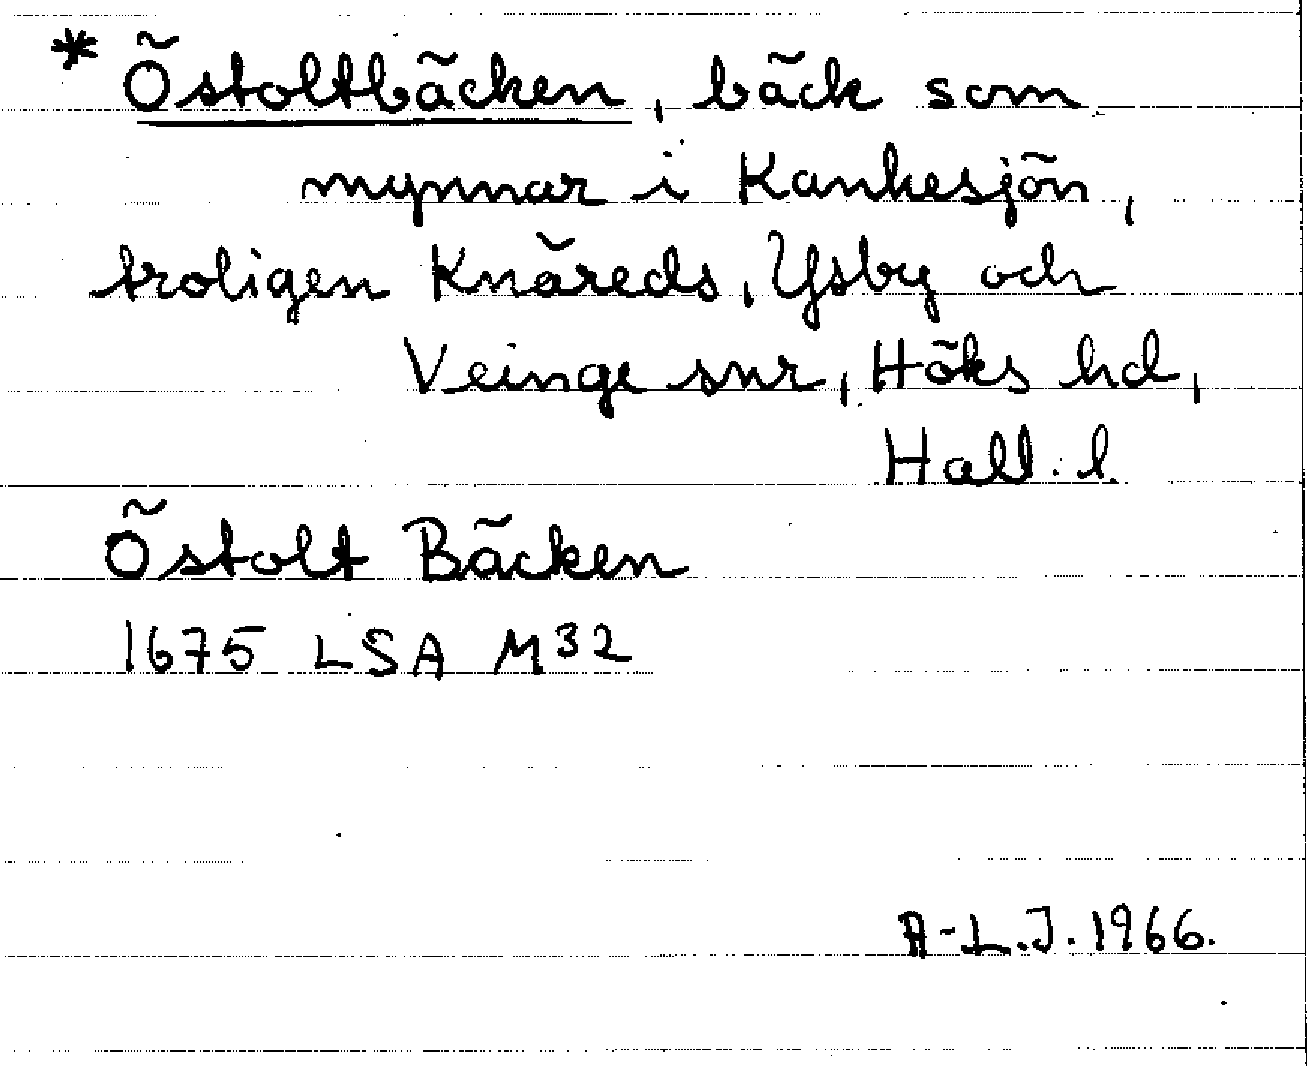 * Östoltbäcken, bäck som
mynnar i Kankesjön,
troligen Knäreds, Ysby och
Veinge snr, Höks hd,
Hall. l.
Östolt Bäcken
1675 LSA M32
A-L.J. 1966.